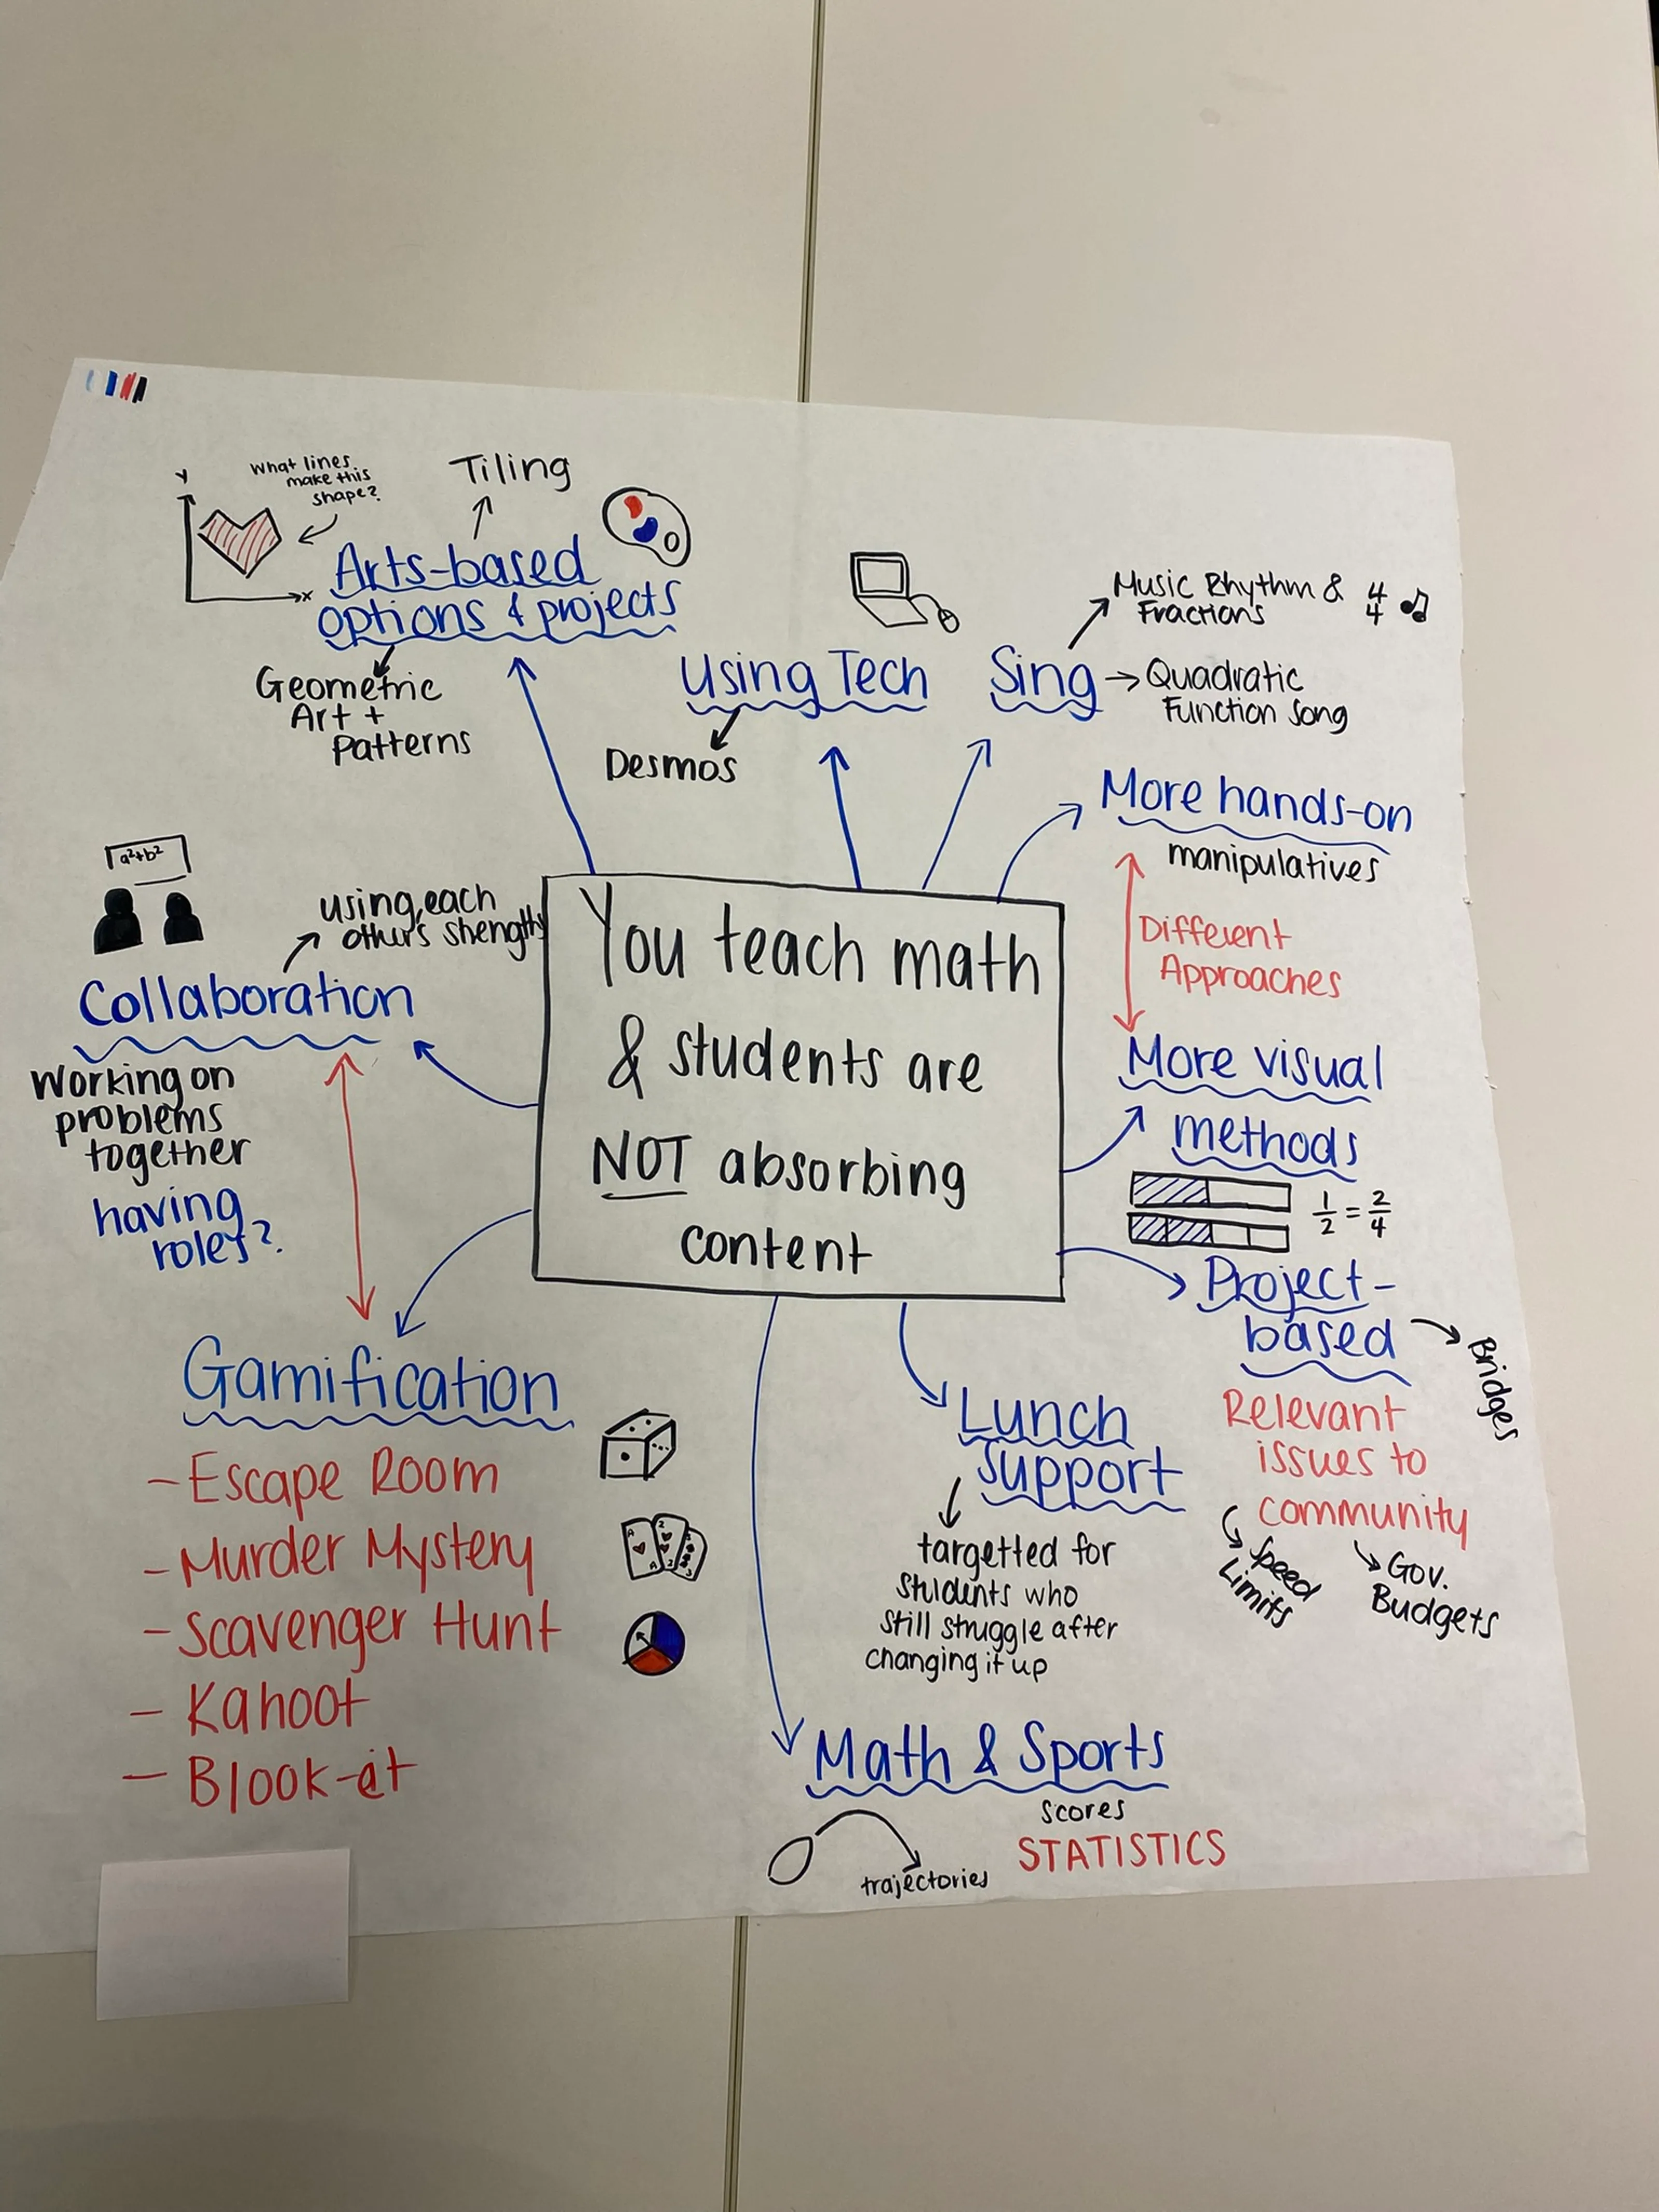 Y
What lines
make this
shape?
x
Tiling
Arts-based
options & projects
Geometric
Art +
Patterns
Using Tech
Desmos
Sing
Music Rhythm &
Fractions
4
4
Quadratic
Function Song
More hands-on
manipulatives
Different
Approaches
More visual
methods
1/2 = 2/4
a²+b²
using each
others strengths
Collaboration
Working on
problems
together
having
roles?
You teach math
& students are
NOT absorbing
content
Project-
based
Bridges
Relevant
issues to
community
Speed
Limits
Gov.
Budgets
Gamification
- Escape Room
- Murder Mystery
- Scavenger Hunt
- Kahoot
- Blook-it
A
A
2
2
3
Lunch
Support
targetted for
students who
still struggle after
changing it up
Math & Sports
scores
STATISTICS
trajectories